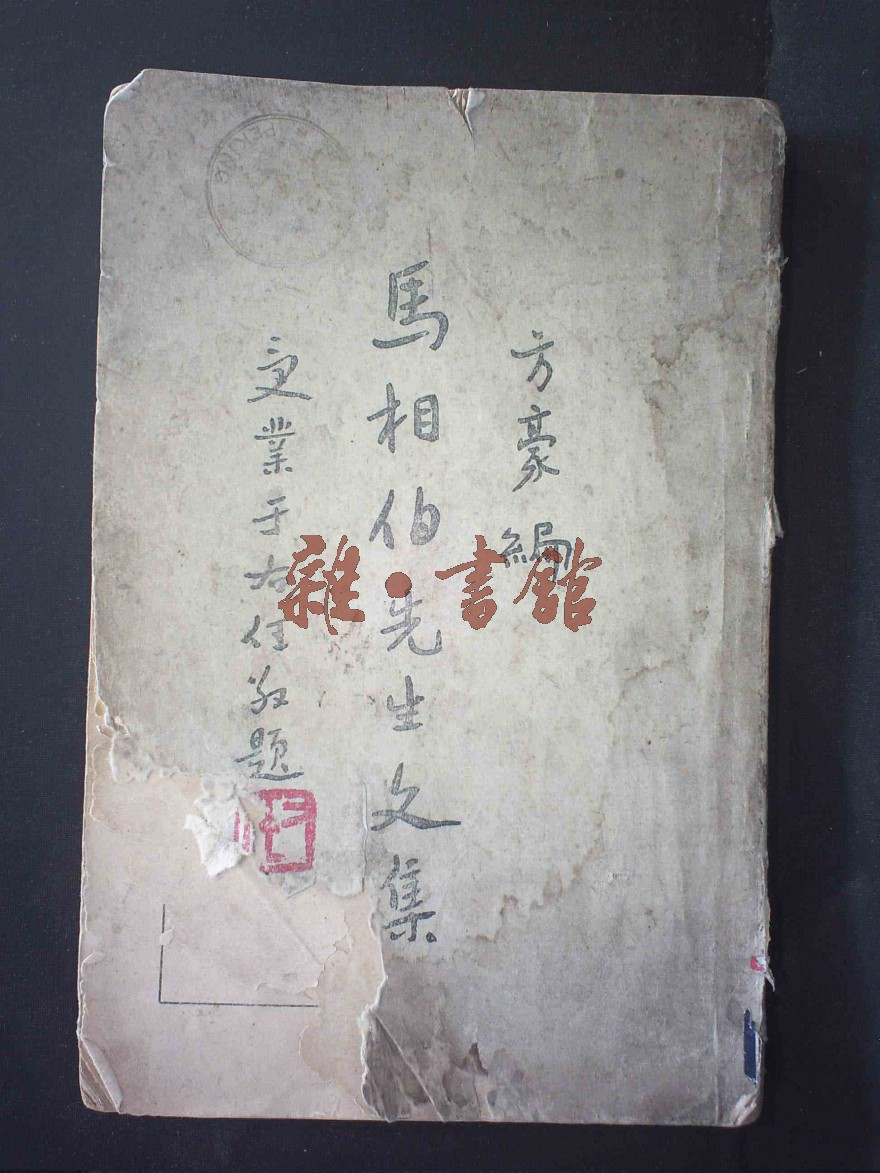 方豪編
馬相伯先生文集
受業于右任敬題
PEKING
雜·書館